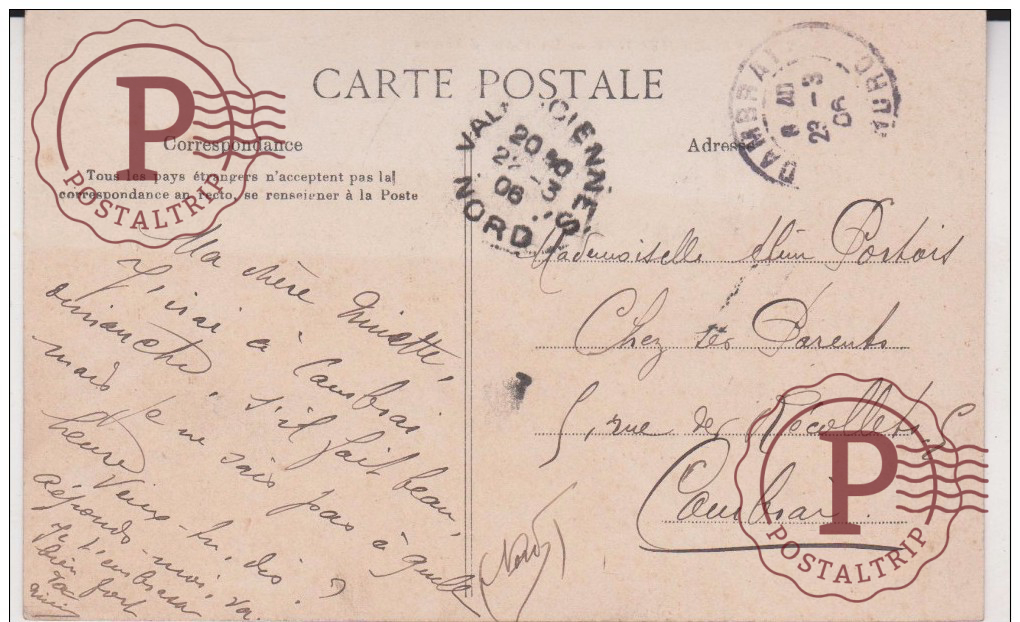 CARTE POSTALE
Correspondance
Tous les pays étrangers n'acceptent pas la
correspondance au recto, se renseigner à la Poste
Adresse
VALENCIENNES
20
27 - 3
06
NORD
CAMBRAI NORD
8
22 - 3
06
P
POSTALTRIP
Ma chère Ninette,
J'irai à Cambrai
dimanche, s'il fait beau,
mais je ne sais pas à quelle
heure. Veux-tu, dis?
réponds-moi, va.
Je t'embrasse
bien fort
Ta
Mademoiselle Portois
Chez ses Parents
5, rue des Récollets
Cambrai
(Nord)
P
POSTALTRIP